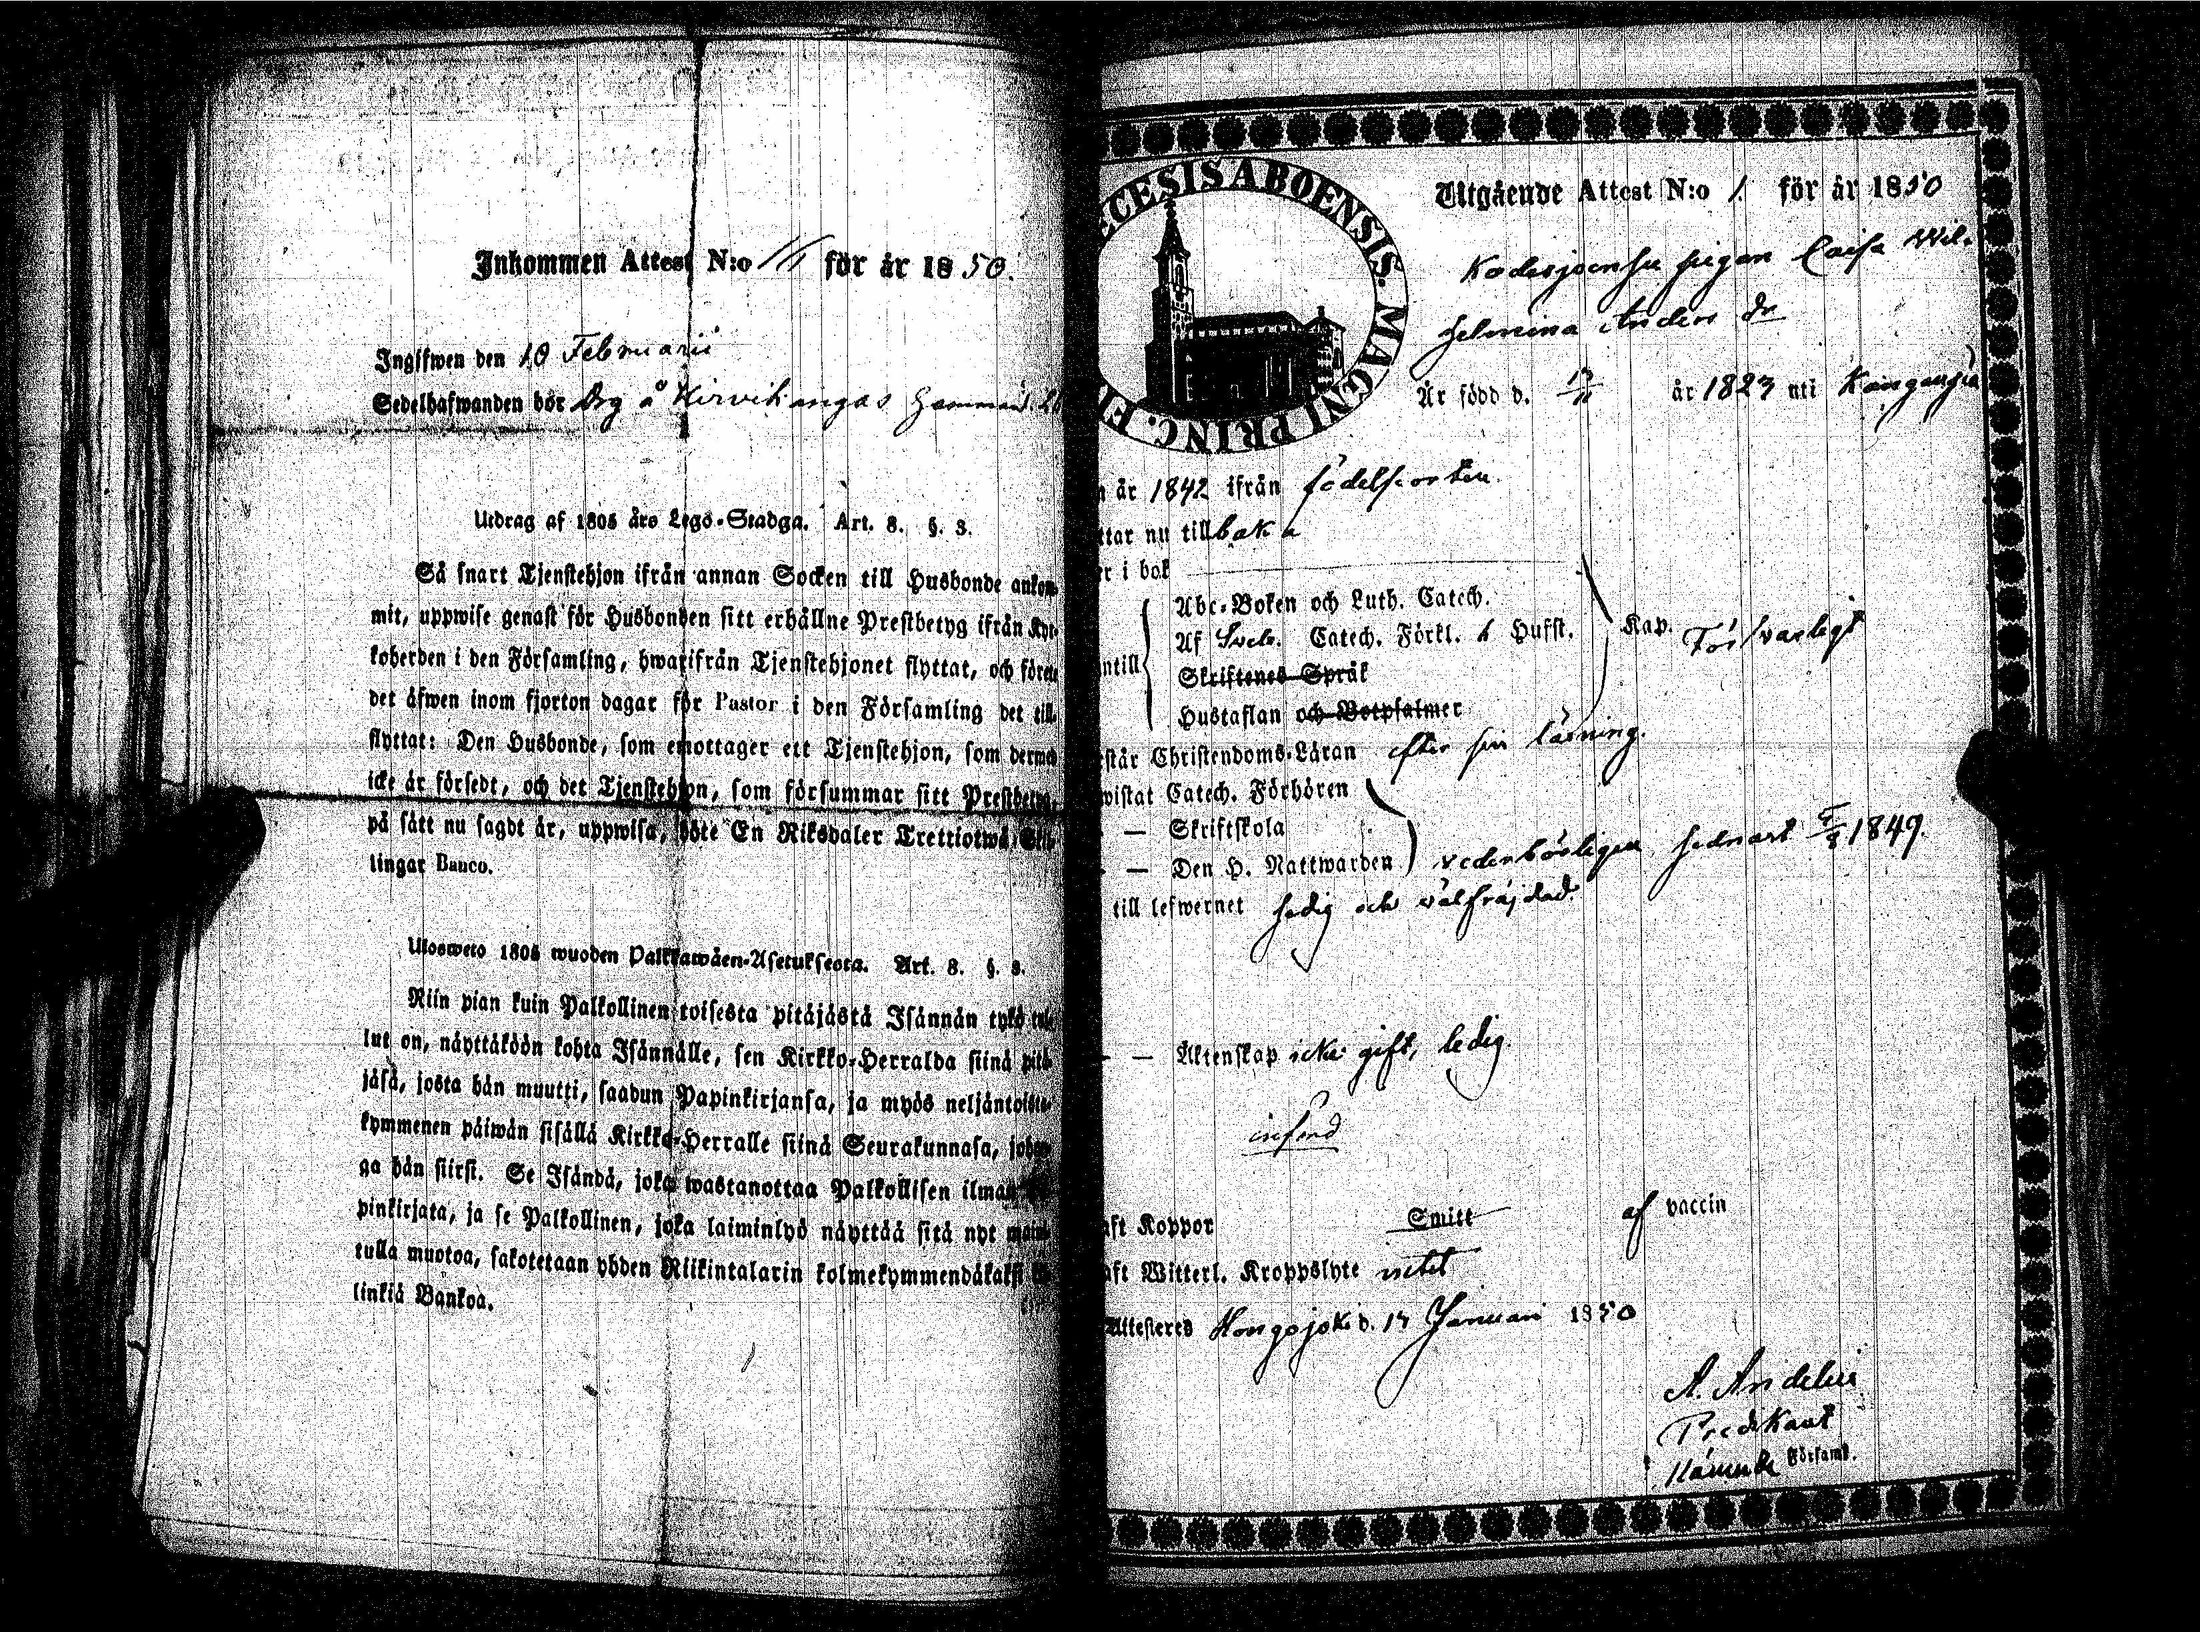 Inkommen Attest N:o 11 för år 1850.
Ingifwen den 10 Februarii
Sedelhafwanden bör Drg å Hirvikangas
Utdrag af 1805 års Lego-Stadga. Art. 8. §. 3.
Så snart Tjenstehjon ifrån annan Socken till Husbonde ankom-
mit, uppwise genast för Husbonden sitt erhållne Prestbetyg ifrån Kyr-
koherden i den Församling, hwarifrån Tjenstehjonet flyttat, och förete
det äfwen inom fjorton dagar för Pastor i den Församling det till-
flyttat: Den Husbonde, som emottager ett Tjenstehjon, som dermed
icke är försedt, och det Tjenstehjon, som försummar sitt Prestbetyg,
på sätt nu sagdt är, uppwisa, böte En Riksdaler Trettiotwå Skil-
lingar Banco.
Ulosweto 1805 wuoden Palkkawäen-Asetuksesta. Art. 8. §. 3.
Niin pian kuin Palkollinen toisesta pitäjästä Isännän tykö tul-
lut on, näyttäköön kohta Isännälle, sen Kirkko-Herralda siinä pitä-
jäsä, josta hän muutti, saadun Papinkirjansa, ja myös neljäntoista-
kymmenen päiwän sisällä Kirkko-Herralle siinä Seurakunnasa, johon-
ga hän siirsi. Se Isändä, joka wastanottaa Palkollisen ilman
pinkirjata, ja se Palkollinen, joka laiminlyö näyttää sitä nyt mai-
tulla muotoa, sakotetaan yhden Riikintalarin kolmekymmendäkaksi
linkiä Bankoa.
ECESIS ABOENSIS. MAGNI PRINC. FI
Utgående Attest N:o 1. för år 1850
Kodesjoensu pigan Caisa Wil-
helmina Anders dr
Är född d. 13/11 år 1823 uti Kangan
n år 1842 ifrån födelseorten.
ttar nu tillbaka
er i bok
Abc-Boken och Luth. Catech.
Af Sveb. Catech. Förkl. h Hufst. Kap. Försvarligt
ntill
Skriftenes Språk
Hustaflan och Botpsalmer
står Christendoms-Läran efter sin läsning.
wistat Catech. Förhören
— Skriftskola
— Den H. Nattwarden vederbörligen sednast 1849.
till lefwernet sedig och välfräjdad.
— — Äktenskap icke gift, ledig
införd
aft Koppor Smitt af vaccin
aft Witterl. Kroppslyte intet
Attesteres Hongojoki d. 14 Januari 1850
A. Aridelin
Predikant
Församl.